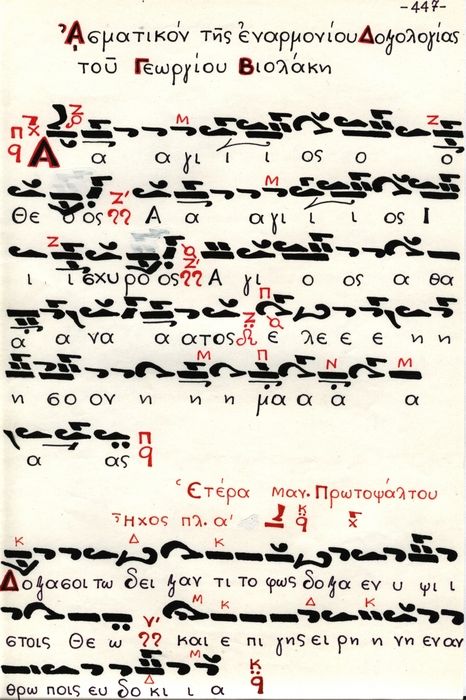 -447-
Ἀσματικόν τῆς ἐναρμονίου Δοξολογίας
τοῦ Γεωργίου Βιολάκη
Α α α γι ι ι ος ο ο
Θε ος Α α α γι ι ι ος Ι
ι ι σχυρο ος Α γι ο ος α θα
α α να α ατος ε λε ε ε η η
η σο ον η η η μα α α α
α ας
Ἑτέρα Μαν. Πρωτοψάλτου
Ἦχος πλ. α'
Δοξασοι τω δει ξαν τι το φως δοξα εν υ ψι ι
στοις Θε ω και ε πι γης ει ρη νη εν αν
θρω ποις ευ δο κι ι α